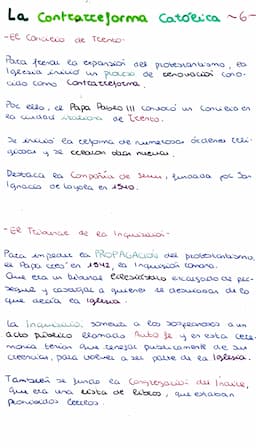 La Contrarreforma Católica ~6~
-El Concilio de Trento-
Para frenar la expansión del protestantismo, la
Iglesia inició un proceso de renovación cono-
cido como Contrarreforma.
Por ello, el Papa Pablo III convocó un Concilio en
la ciudad italiana de Trento.
Se inició la reforma de numerosas órdenes reli-
giosas y se crearon otras nuevas.
Destaca la Compañía de Jesús, fundada por San
Ignacio de Loyola en 1540.
-El Tribunal de la Inquisición-
Para impedir la PROPAGACIÓN del protestantismo,
el Papa creó en 1542, la Inquisición romana.
Que era un tribunal eclesiástico encargado de per-
seguir y castigar a quienes se desviaban de lo
que decía la Iglesia.
La Inquisición, sometía a los sospechosos a un
acto público llamado Auto fe y en esta cere-
monia tenían que renegar públicamente de sus
creencias, para volver a ser parte de la Iglesia.
También se fundó la Congregación del Índice,
que era una lista de libros, que estaban
prohibidos leerlos.